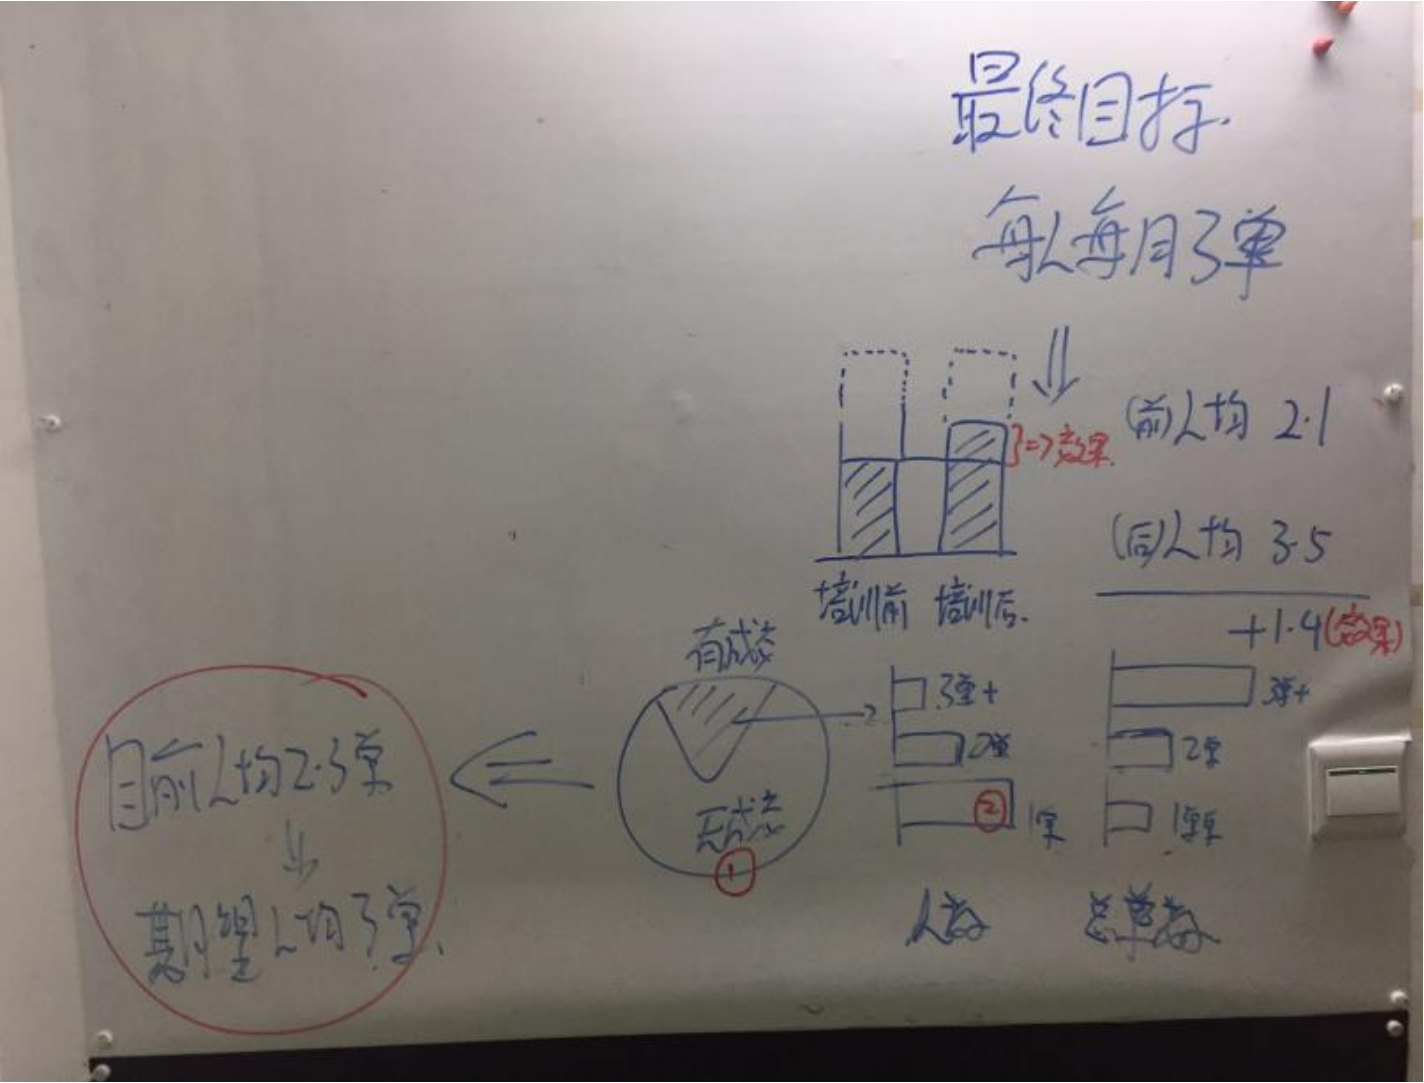 最终目标.
每人每月3单
}=>效果
(前)人均 2.1
(后)人均 3.5
+1.4(效果)
培训前 培训后.
有成交
无成交
①
3单+
2单
②
1单
人数
3单+
2单
1单
总单数
目前人均2.3单
期望人均3单.